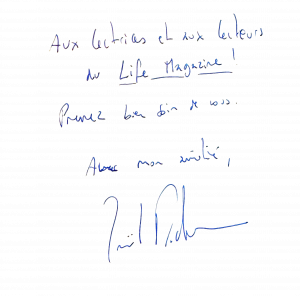 Aux lectrices et aux lecteurs
du Life Magazine!
Prenez bien soin de vous.
Avec mon amitié,